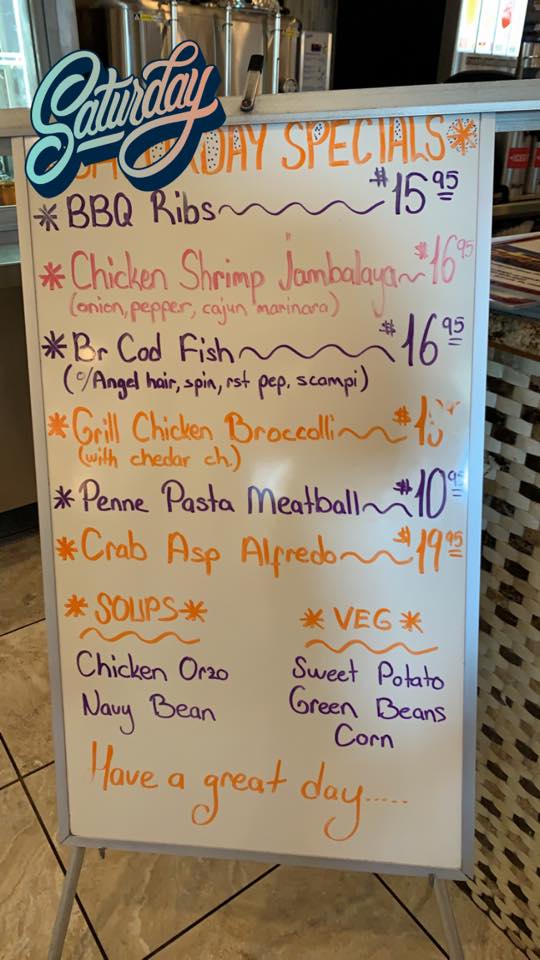 Saturday
SATURDAY SPECIALS
BBQ Ribs $15.95
Chicken Shrimp Jambalaya $16.95
(onion, pepper, cajun marinara)
Br Cod Fish $16.95
(c/Angel hair, spin, rst pep, scampi)
Grill Chicken Broccolli
(with chedar ch.)
Penne Pasta Meatball $10.95
Crab Asp Alfredo $19.95
SOUPS
Chicken Orzo
Navy Bean
VEG
Sweet Potato
Green Beans
Corn
Have a great day.....